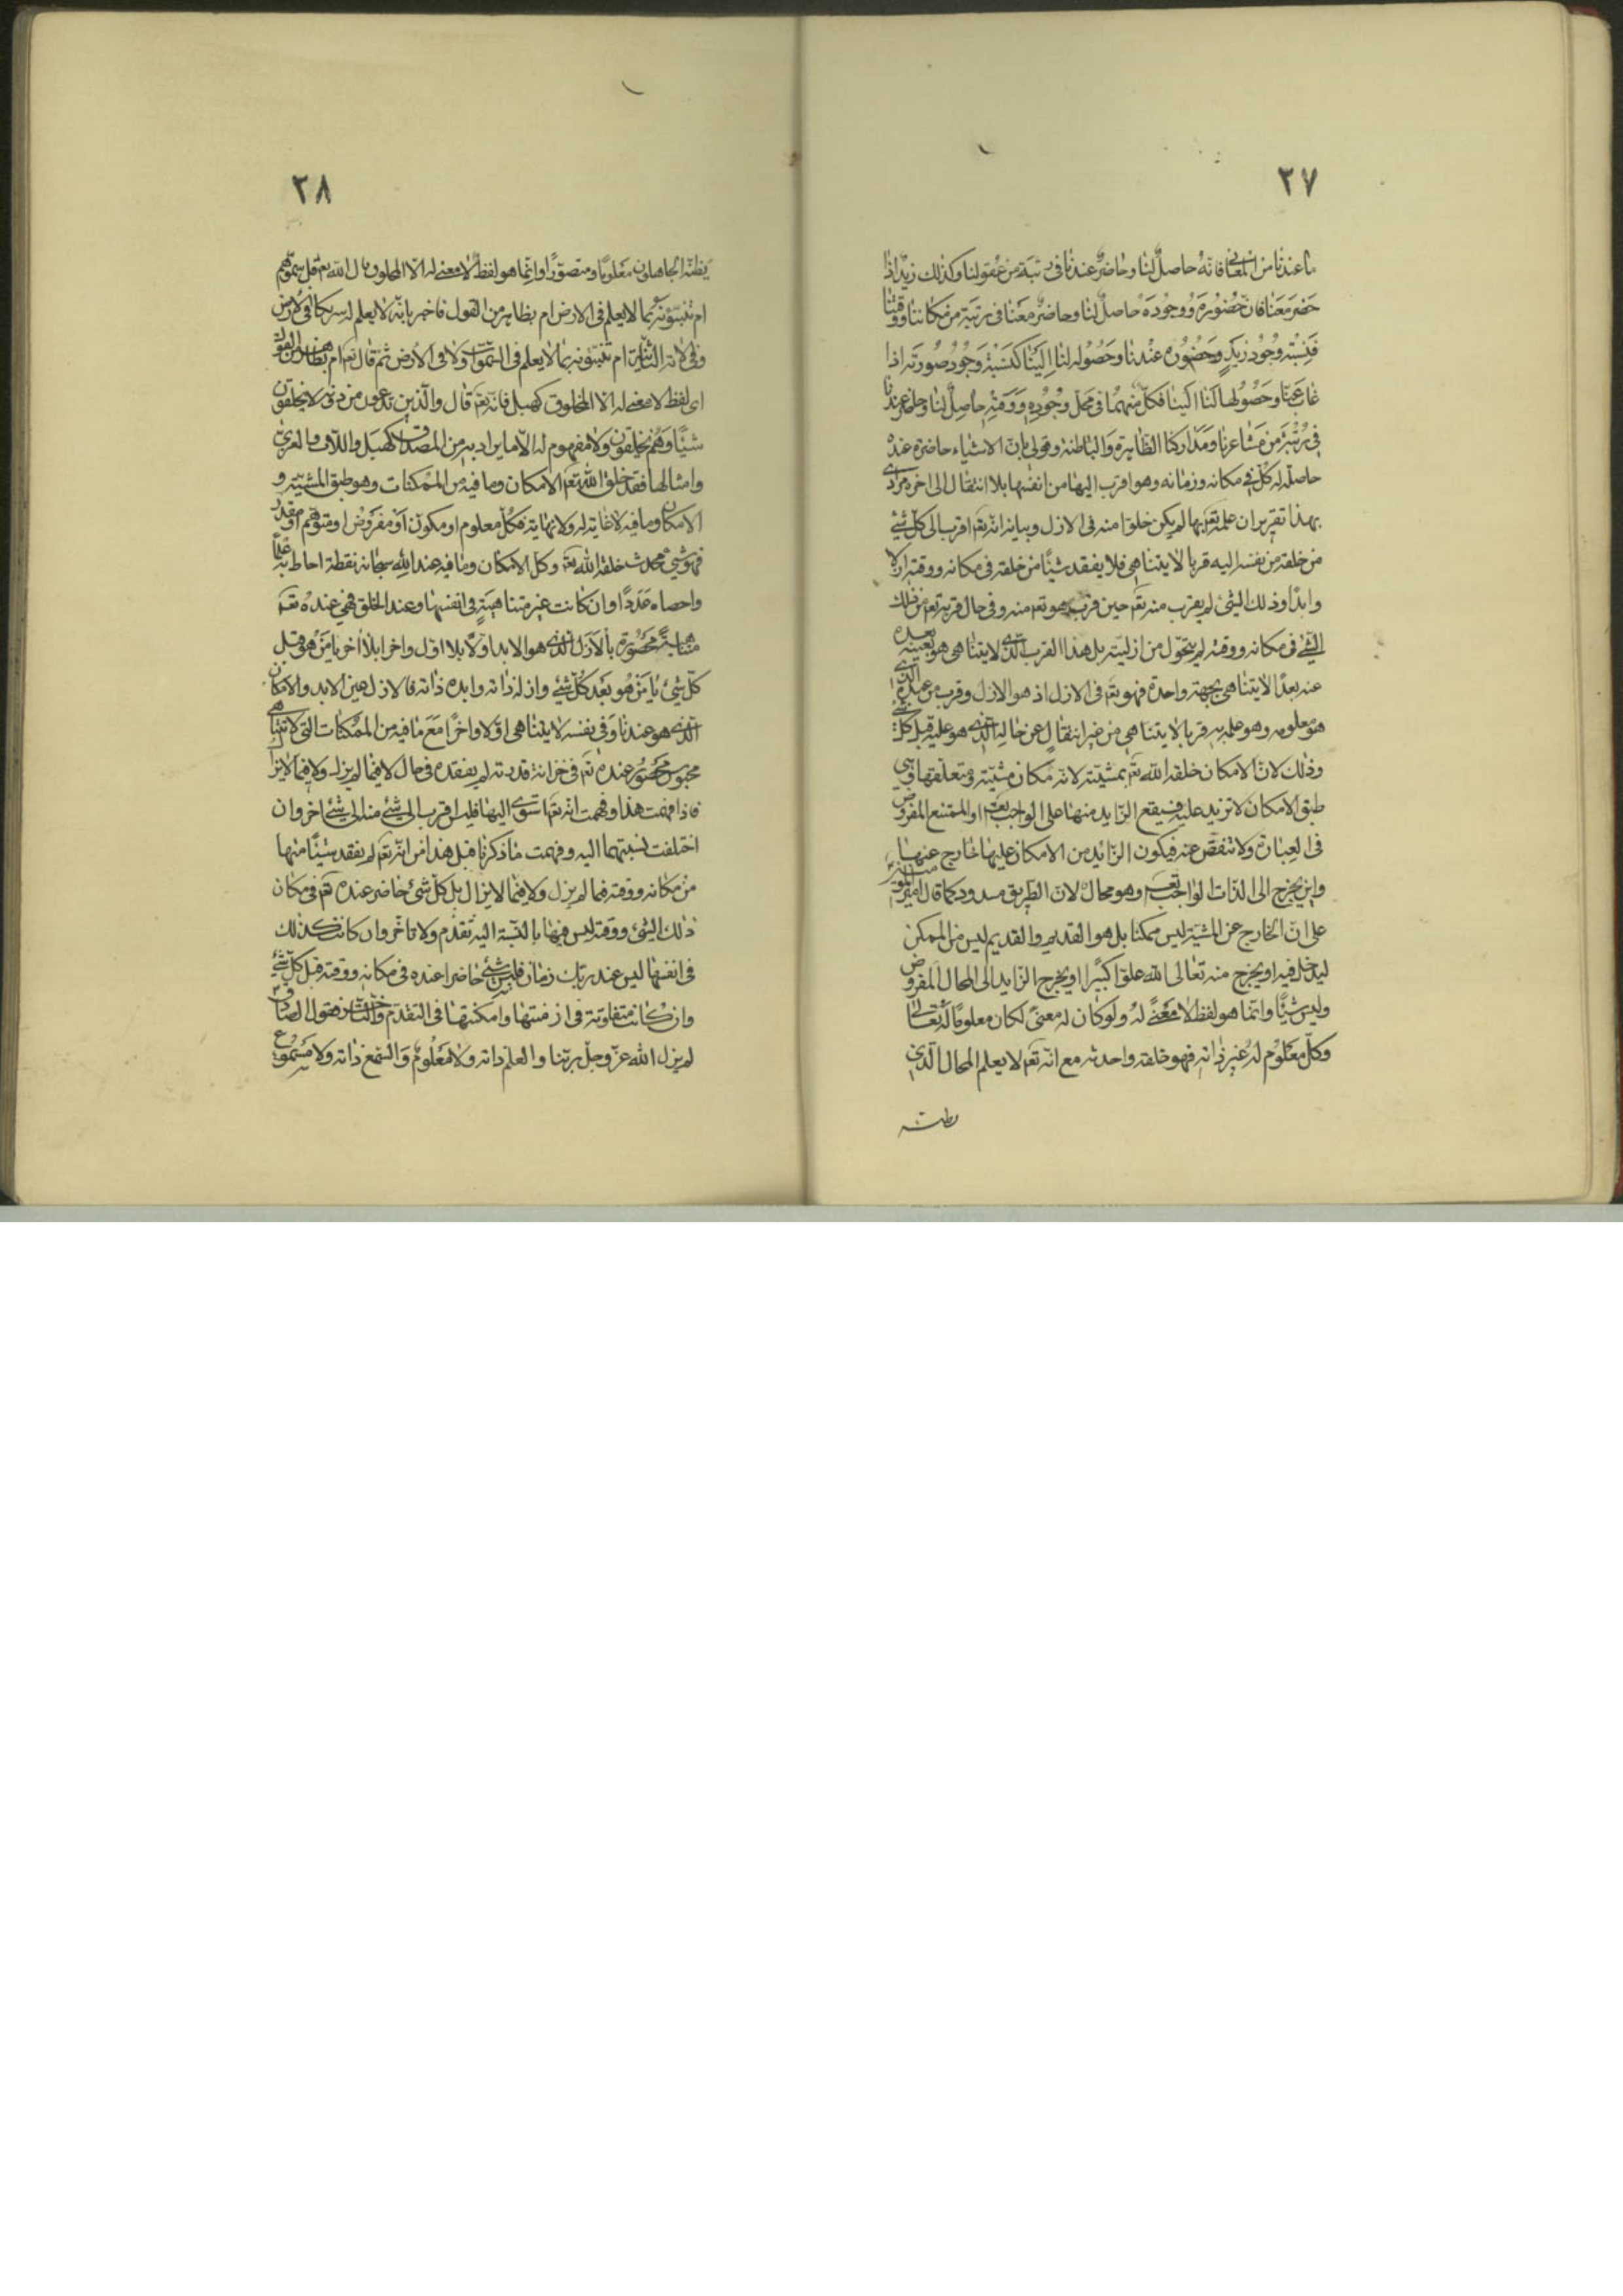 ٢٧
ما عندنا من المعاني فانه حاصل لنا وحاضر عندنا في رتبة من عقولنا وكذلك زيد اذا
حضر معنا فان حضوره ووجوده حاصل لنا وحاضر معنا في رتبة من مكاننا ووقتنا
فنسبة وجود زيد وحضوره عندنا وحصوله لنا الينا كنسبة وجود صورته اذا
غاب عنا وحصولها لنا الينا فكل منهما في محل وجوده ووقته حاصل لنا وحاضر عندنا
في رتبة من مشاعرنا ومداركنا الظاهرة والباطنة وقولي بان الاشياء حاضرة عنده
حاصلة له كل في مكانه وزمانه وهو اقرب اليها من انفسها بلا انتقال الى اخره مرادي
بهذا تقرير ان علمه تعم بها لم يكن خلوا منه في الازل وبيانه انه تعم اقرب الى كل شيء
من خلقه من نفسه اليه قربا لا يتناهى فلا يفقد شيئا من خلقه في مكانه ووقته ازلا
وابدا وذلك الشيء لم يقرب منه تعم حين قرب هو تعم منه وفي حال قربه تعم من ذلك
الشيء في مكانه ووقته لم يتحول من ازليته بل هذا القرب الذي لا يتناهى هو بعينه بعده
عنه بعدا لا يتناهى بجهة واحدة فهو تعم في الازل اذ هو الازل وقرب من عبده الذي
هو معلومه وهو علمه به قربا لا يتناهى من غير انتقال عن حاله الذي هو عليه قبل كل شيء
وذلك لان الامكان خلقه الله تعم بمشيته لانه مكان مشيته ومتعلقها وهي
طبق الامكان لا تزيد عليه فيقع الزايد منها على الواجب تعم او الممتنع المفروض
في العبارة ولا تنقص عنه فيكون الزائد من الامكان عليها خارج عنها
واين يخرج الى الذات الواجب تعم وهو محال لان الطريق مسدود كما قال امير المؤمنين
على ان الخارج عن المشية ليس ممكنا بل هو القديم والقديم ليس من الممكن
ليدخل فيه او يخرج منه تعالى الله علوا كبيرا او يخرج الزايد الى المحال المفروض
وليس شيئا وانما هو لفظ لا معنى له ولو كان له معنى لكان معلوما له تعالى
وكل معلوم له غير ذاته فهو خلقه واحدثه مع انه تعم لا يعلم المحال الذي
يظنه
٢٨
يظنه الجاهلون معلوما ومتصورا وانما هو لفظ لا معنى له الا المخلوق قال الله تعم قل سموهم
ام تنبئونه بما لا يعلم في الارض ام بظاهر من القول فاخبر بانه لا يعلم له شريكا في الارض
وفي الاية الثانية ام تنبئونه بما لا يعلم في السموات ولا في الارض ثم قال تعم ام بظاهر من القول
اي لفظ لا معنى له الا المخلوق كهبل فانه تعم قال والذين تدعون من دونه لا يخلقون
شيئا وهم يخلقون ولا مفهوم له الا ما يراد به من المصداق كهبل واللات والعزى
وامثالها فقد خلق الله تعم الامكان وما فيه من الممكنات وهو طبق المشية و
الامكان وما فيه لا غاية له ولا نهاية فكل معلوم او مكون او مفروض او متوهم او مقدر
فهو شيء محدث خلقه الله تعم وكل الامكان وما فيه عند الله سبحانه نقطة احاط به علما
واحصاه عددا وان كانت غير متناهية في انفسها وعند الخلق فهي عنده تعم
متناهية محصورة بالازل الذي هو الابد اولا بلا اول واخرا بلا اخر يا من هو قبل
كل شيء يا من هو بعد كل شيء وازله ذاته وابده ذاته فالازل عين الابد والامكان
الذي هو عندنا وفي نفسه لا يتناهى اولا واخرا مع ما فيه من الممكنات التي لا تتناهى
محبوس محصور عنده تم في خزانة قدرته لم يفقده في حال لا فيما لم يزل ولا فيما لا يزال
فاذا فهمت هذا وفهمت انه تعم استوى اليها فليس اقرب الى شيء منه الى شيء اخر وان
اختلفت نسبتهما اليه وفهمت ما ذكرنا قبل هذا من انه تعم لم يفقد شيئا منها
من مكانه ووقته فيما لم يزل ولا فيما لا يزال بل كل شيء حاضر عنده تعم في مكان
ذلك الشيء ووقته ليس فيها بالنسبة اليه تقدم ولا تاخر وان كانت كذلك
في انفسها ليس عند ربك زمان فليس شيء حاضرا عنده في مكانه ووقته قبل كل شيء
وان كانت متفاوتة في ازمنتها وامكنتها في التقدم والتاخر فقول الصادق
لم يزل الله عز وجل ربنا والعلم ذاته ولا معلوم والسمع ذاته ولا مسموع